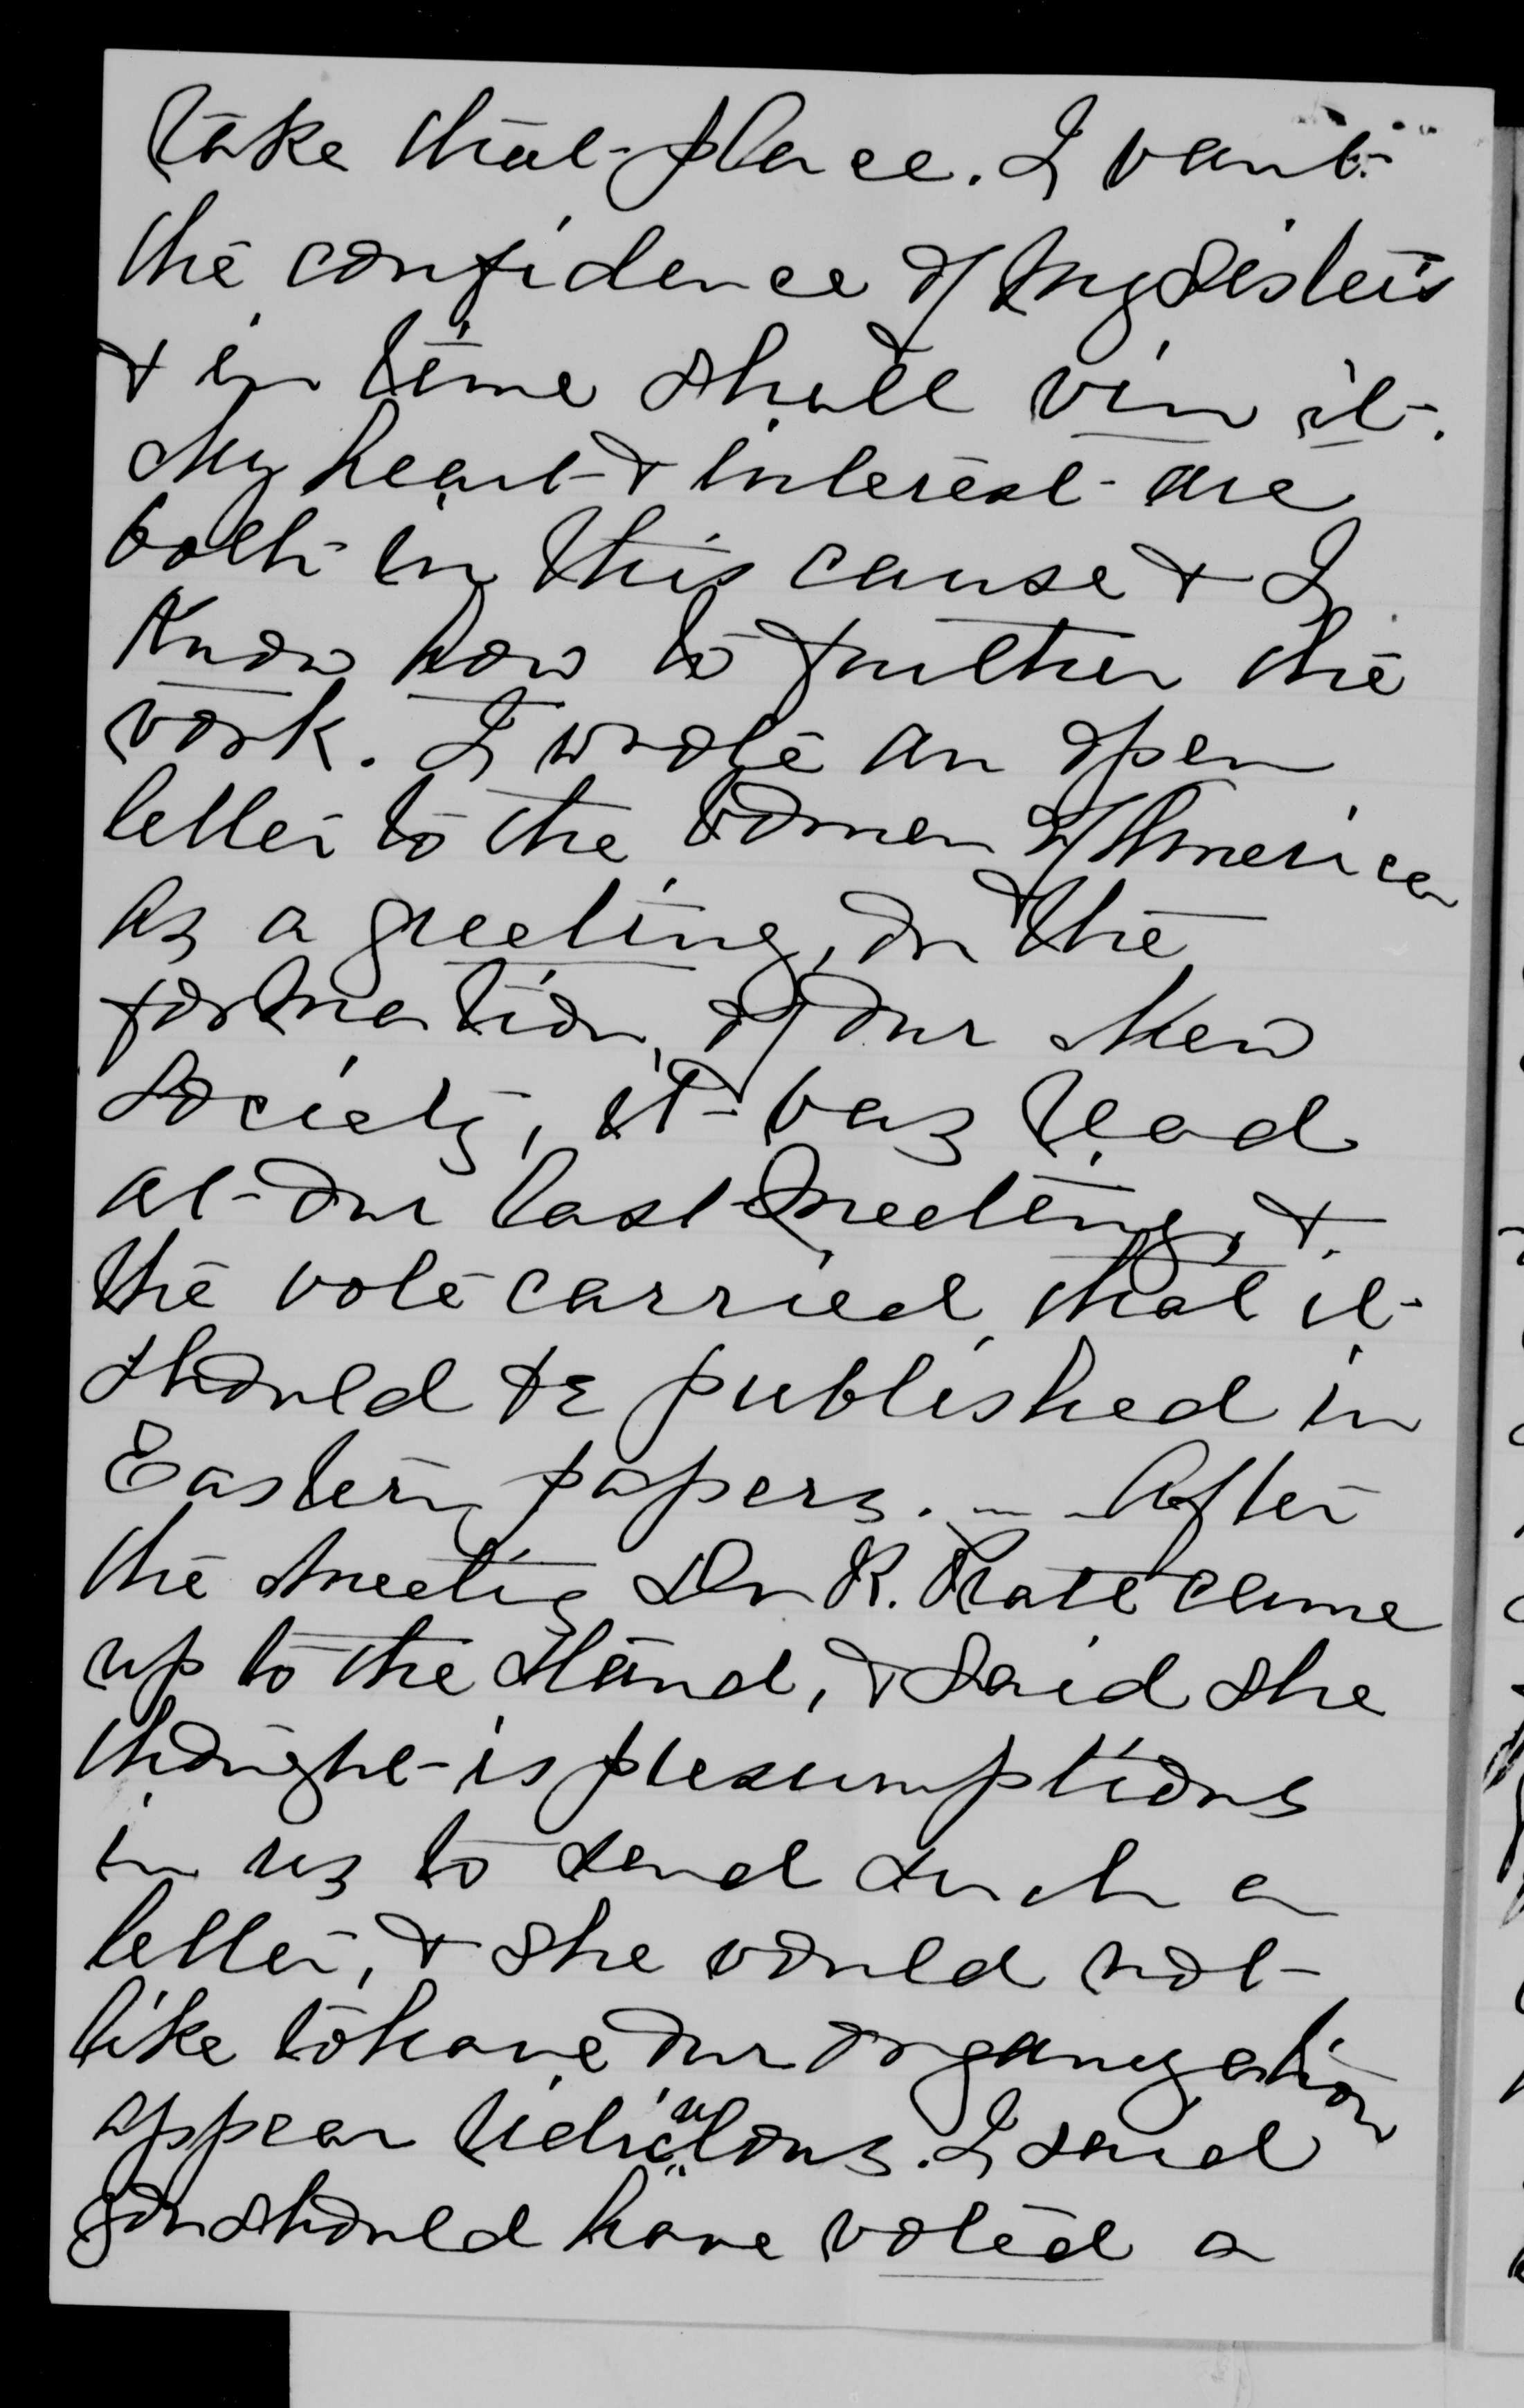 take that place. I want
the confidence of my sisters
& in time shall win it.
My heart & interest are
both in this cause & I
know how to further the
work. I wrote an open
letter to the women of America
as a greeting, on the
formation, of our New
Society, it was read
at our last meeting, &
the vote carried, that it
should be published in
Eastern papers. — After
the meetig Dr R. Kate came
up to the stand, & said she
thought is presumptions
in us to send such a
letter, & she would not
like to have our organization
appear ridiculous. I said
you should have voted a